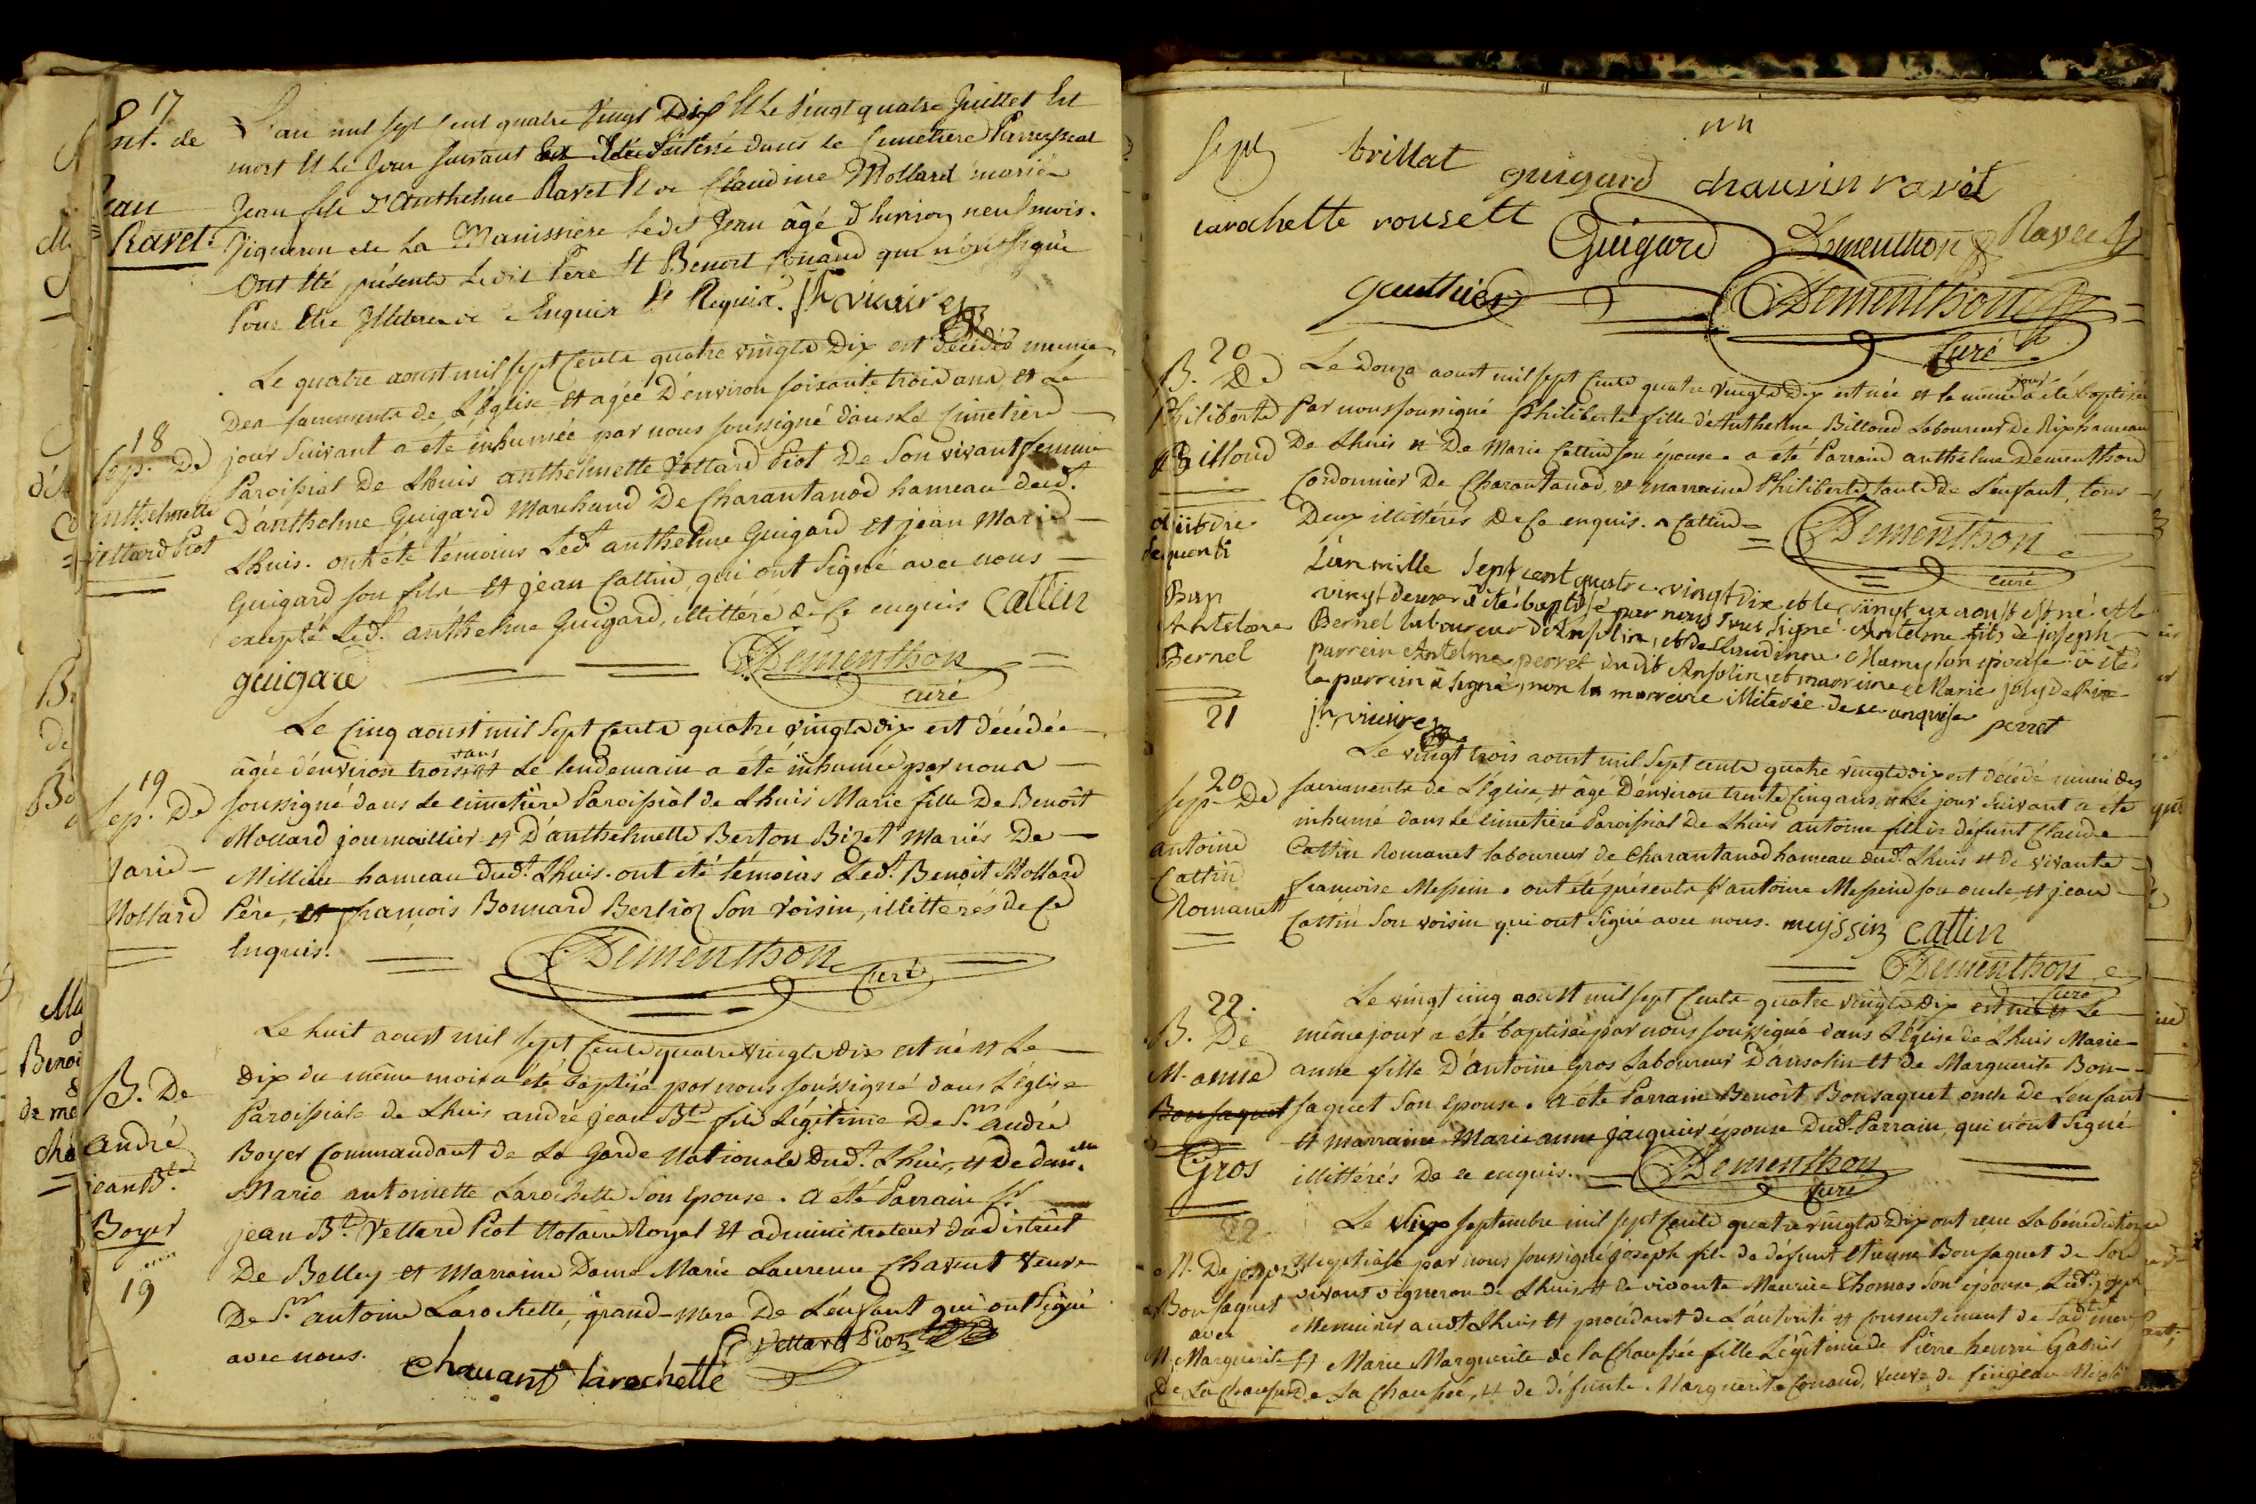 17
Ent. de
Jean
Ravet.
L'an mil sept cent quatre vingt Dix Et le vingt quatre Juillet Est
mort Et le Jour suivant a été Enterré dans le Cimetiere Parroissial
Jean fils d'Anthelme Ravet Et de Claudine Mollard mariés
Vigneron de La Manissiere ledit Jean âgé d'Environ neuf mois.
Ont Eté présents Ledit Père Et Benoit Conand qui n'ont signé
Pour Etre Illiteres de ce Enquis Et Requis. jh vicaire
18
Sep. De
anthelmette
vettard Piot
Le quatre aoust mil sept Cents quatre vingts Dix est décédée munie
Des sacrements de L'église et agée D'environ soixante trois ans, et Le
jour suivant a été inhumée par nous soussigné dans Le Cimetière
Paroissial De Lhuis anthelmette Vettard Piot De Son vivant femme
D'anthelme Guigard Marchand De Charantanod hameau dudt.
Lhuis. ont été témoins Ledt anthelme Guigard et jean Marie
Guigard son fils et jean Cattin, qui ont Signé avec nous
excepté Ledt. anthelme Guigard, illittéré de Ce enquis Cattin
guigard Dementhon
curé
19
Sep. De
Marie
Mollard
Le Cinq aoust mil Sept Cents quatre vingts dix est décédée
âgée d'environ trois ans et Le lendemain a été inhumée par nous
soussigné dans Le cimetière Paroissial de Lhuis Marie fille De Benoît
Mollard journaillier et D'anthelmette Berton Bizet Mariés De
Millieu hameau dudt. Lhuis. ont été témoins Ledt. Benoit Mollard
Père, et françois Bonnard Berlioz Son Voisin, illittérés de Ce
Enquis.
Dementhon Curé
B. De
André
jean Bte.
Boyer
19
Le huit aoust mil sept Cents quatre vingts dix est né et Le
Dix du même mois a été baptisé par nous soussigné dans L'église
Paroissiale de Lhuis andré jean Bte fils Légitime De Sr. André
Boyer Commandant de La Garde Nationale Dudt. Lhuis, et De dam.lle
Marie antoinette Larochette Son Epouse. a été Parrain Sr
jean Bte. Vettard Piot Notaire Royal et administrateur du district
De Belley et Marraine Dame Marie Laurence Chavent Veuve
De Sr antoine Larochette, grand-Mere De L'enfant qui ont Signé
avec nous.
Vettard Piot
chavant larochette
Sept
brillat guigard chauvin ravet
larochette rousett Guigard Dementhon Ravet
gauthier Dementhon
Curé
20
B. De
Philiberte
Billoud
Le Douze aoust mil sept Cents quatre vingts Dix est née et le même jour a été baptisée
Par nous soussigné Philiberte fille d'Anthelme Billoud Laboureur de Rix hameau
De Lhuis et De Marie Cattin son épouse. a été Parrain anthelme Dementhon
Cordonnier De Charantanod, et marraine Philiberte tante de L'enfant, tous
Deux illittérés De Ce enquis. Cattin
Dementhon
curé
Bap
Antelme
Bernel
21
L'an mille Sept cent quatre vingt dix et le vingt un aoust est né et le
vingt deux a été baptisé par nous sous signé Antelme fils de joseph
Bernel laboureur d'Ansolin, et de Claudinne Mamey son épouse a été
parrein Antelme perret du dit Ansolin, et marreine Marie joly de Rix
le parrein a signé, non la marreine illiterée de ce enquise perret
jh vicaire
20
Sep. De
antoine
Cattin
Romanet
Le vingt trois aoust mil Sept cents quatre vingts dix est décédé muni des
sacrements de L'église, et âgé D'environ trente Cinq ans, et Le jour suivant a été
inhumé dans Le cimetière Paroissial De Lhuis antoine fils de défunt Claude
Cattin Romanet laboureur de Charantanod hameau dudt. Lhuis et de vivante
françoise Messein. ont été présents St antoine Messein son oncle, et jean
Cattin Son voisin qui ont Signé avec nous. meyssin Cattin
Dementhon
Curé
22.
B. De
M. anne
Bonsaquet
Gros
Le vingt cinq aoust mil sept Cents quatre vingts dix est née et Le
même jour a été baptisée par nous soussigné dans L'église de Lhuis Marie
anne fille D'antoine Gros Laboureur D'ansolin et de Marguerite Bon-
saquet Son Epouse. a été Parrain Benoît Bonsaquet oncle De L'enfant
et marraine Marie anne jacquier épouse Dudt. Parrain, qui n'ont Signé
illittérés De ce enquis. Dementhon
Curé
22
M. De joseph
Bonsaquet
avec
M. Marguerite
De La Chaussée
Le Six septembre mil sept Cents quatre vingts dix ont reçu La bénédiction
Nuptiale par nous soussigné joseph fils de défunt Etienne Bonsaquet de Son
vivant vigneron de Lhuis, et de vivante Maurice Thomas Son épouse, Ledt. joseph
Menuisier audt Lhuis et procédant de L'autorité et consentement de Ladte. mere
Et Marie Marguerite de la Chaussée fille Légitime de Pierre henri Gabriel
De La Chaussée, et de défunte Marguerite Conand, veuve de